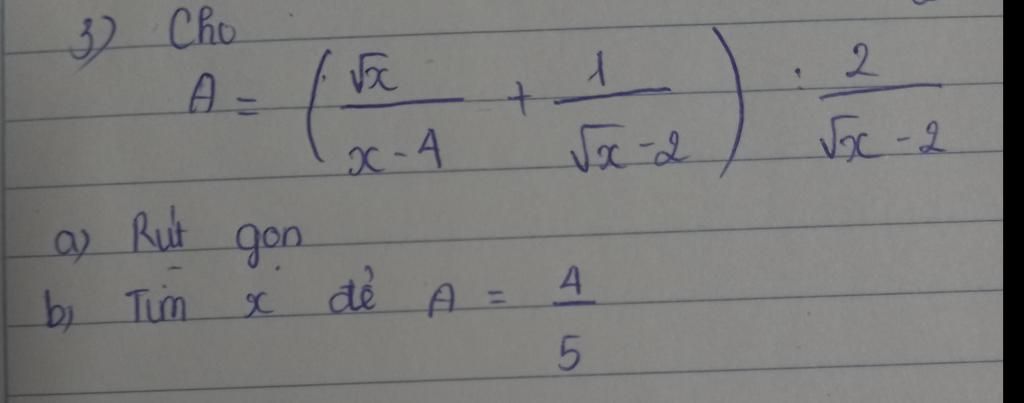 3) Cho
A = ( √x / (x - 4) + 1 / (√x - 2) ) : 2 / (√x - 2)
a) Rút gọn
b) Tìm x để A = 4/5